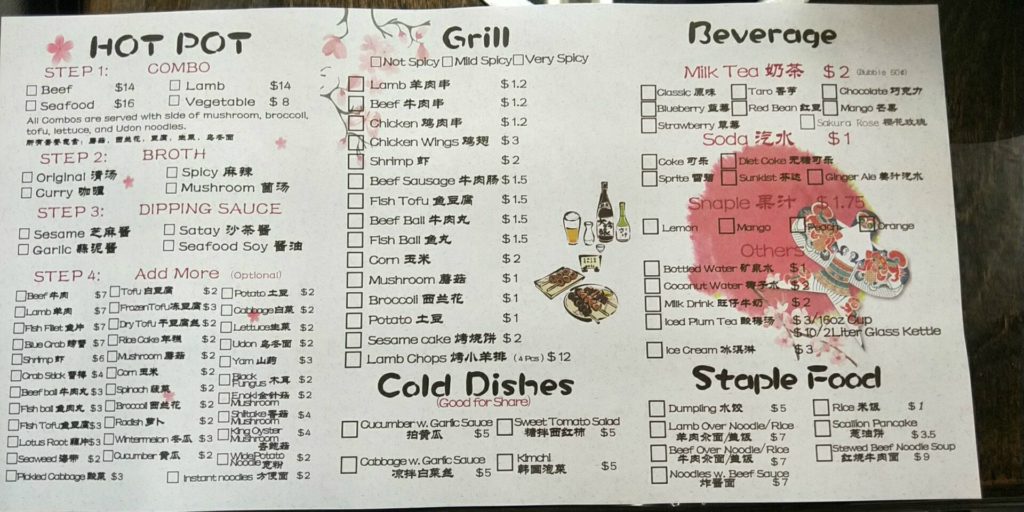 HOT POT
STEP 1: COMBO
Beef $14 Lamb $14
Seafood $16 Vegetable $ 8
All Combos are served with side of mushroom, broccoli,
tofu, lettuce, and Udon noodles.
STEP 2: BROTH
Original 清汤 Spicy 麻辣
Curry 咖喱 Mushroom 菌汤
STEP 3: DIPPING SAUCE
Sesame 芝麻酱 Satay 沙茶酱
Garlic 蒜泥酱 Seafood Soy 酱油
STEP 4: Add More (Optional)
Beef 牛肉 $7 Tofu 白豆腐 $2 Potato 土豆 $2
Lamb 羊肉 $7 Frozen Tofu 冻豆腐 $3 Cabbage 白菜 $2
Fish Fillet 鱼片 $7 Dry Tofu 干豆腐丝 $2 Lettuce 生菜 $2
Blue Crab 螃蟹 $7 Rice Cake 年糕 $2 Udon 乌冬面 $2
Shrimp 虾 $6 Mushroom 蘑菇 $2 Yam 山药 $3
Crab Stick 蟹棒 $4 Corn 玉米 $2 Black Fungus 木耳 $2
Beef ball 牛肉丸 $3 Spinach 菠菜 $2 Enoki Mushroom 金针菇 $2
Fish ball 鱼肉丸 $3 Broccoli 西兰花 $2 Shiitake Mushroom 香菇 $4
Fish Tofu 鱼豆腐 $3 Radish 萝卜 $2 King Oyster Mushroom 杏鲍菇 $4
Lotus Root 藕冲 $3 Wintermelon 冬瓜 $3
Seaweed 海带 $2 Cucumber 黄瓜 $2 Wide Potato Noodle 宽粉 $2
Pickled Cabbage 酸菜 $3 Instant noodles 方便面 $2
Grill
Not Spicy Mild Spicy Very Spicy
Lamb 羊肉串 $1.2
Beef 牛肉串 $1.2
Chicken 鸡肉串 $1.2
Chicken Wings 鸡翅 $3
Shrimp 虾 $2
Beef Sausage 牛肉肠 $1.5
Fish Tofu 鱼豆腐 $1.5
Beef Ball 牛肉丸 $1.5
Fish Ball 鱼丸 $1.5
Corn 玉米 $2
Mushroom 蘑菇 $1
Broccoli 西兰花 $1
Potato 土豆 $1
Sesame cake 烤烧饼 $2
Lamb Chops 烤小羊排 (4 Pcs) $12
Cold Dishes
(Good for Share)
Cucumber w. Garlic Sauce Sweet Tomato Salad
拍黄瓜 $5 糖拌西红柿 $5
Cabbage w. Garlic Sauce Kimchi
凉拌白菜丝 $5 韩国泡菜 $5
Beverage
Milk Tea 奶茶 $2 (Bubble 50¢)
Classic 原味 Taro 香芋 Chocolate 巧克力
Blueberry 蓝莓 Red Bean 红豆 Mango 芒果
Strawberry 草莓 Sakura Rose 樱花玫瑰
Soda 汽水 $1
Coke 可乐 Diet Coke 无糖可乐
Sprite 雪碧 Sunkist 芬达 Ginger Ale 姜汁汽水
Snaple 果汁 $1.75
Lemon Mango Peach Orange
Others
Bottled Water 矿泉水 $1
Coconut Water 椰子水 $2
Milk Drink 旺仔牛奶 $2
Iced Plum Tea 酸梅汤 $3/16oz Cup
$10/2Liter Glass Kettle
Ice Cream 冰淇淋 $3
Staple Food
Dumpling 水饺 $5 Rice 米饭 $1
Lamb Over Noodle/Rice Scallion Pancake
羊肉烩面/盖饭 $7 葱油饼 $3.5
Beef Over Noodle/Rice Stewed Beef Noodle Soup
牛肉烩面/盖饭 $7 红烧牛肉面 $9
Noodles w. Beef Sauce
炸酱面 $7